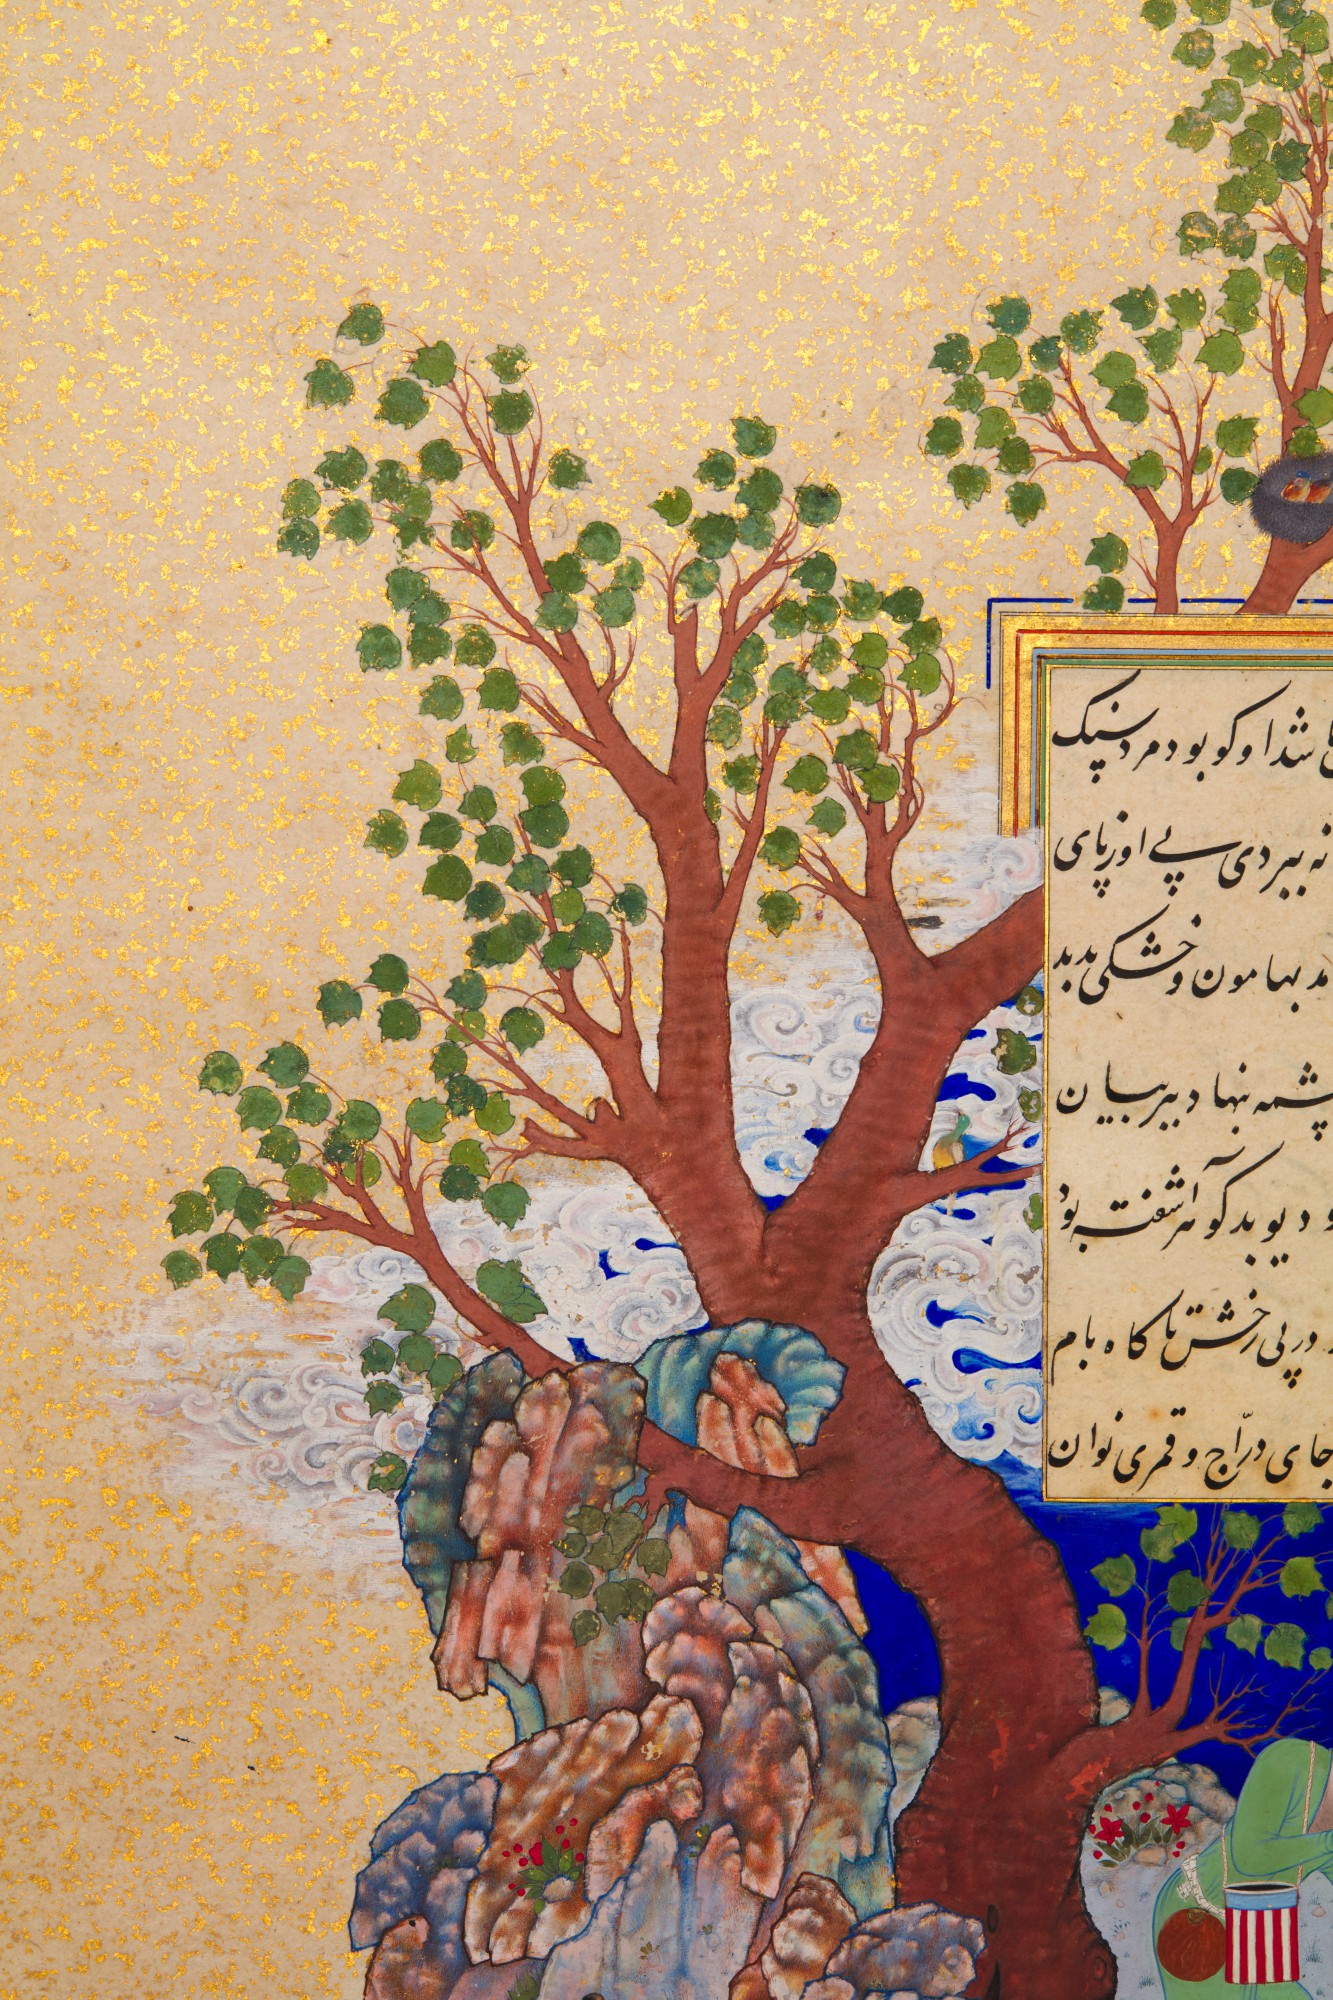 شد او کو بود مرد سنک
نه ببردی پی او ز پای
مد بهامون و خشکی بدید
چشمه بنهاد ببر بیان
دیو بدکوهر آشفته بود
در پی رخش تا کاه بام
جای درّاج و قمری نوان